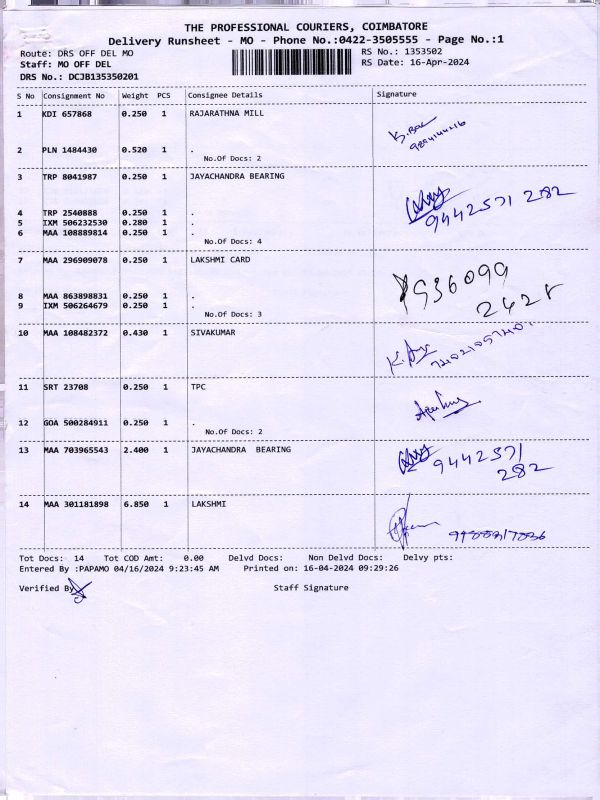 THE PROFESSIONAL COURIERS, COIMBATORE
Delivery Runsheet - MO - Phone No.:0422-3505555 - Page No.:1
Route: DRS OFF DEL MO RS No.: 1353502
Staff: MO OFF DEL RS Date: 16-Apr-2024
DRS No.: DCJB135350201
S No Consignment No Weight PCS Consignee Details Signature
1 KDI 657868 0.250 1 RAJARATHNA MILL
2 PLN 1484430 0.520 1 .
No.Of Docs: 2
3 TRP 8041987 0.250 1 JAYACHANDRA BEARING
9442571 282
4 TRP 2540888 0.250 1 .
5 IXM 506232530 0.280 1 .
6 MAA 108889814 0.250 1 .
No.Of Docs: 4
7 MAA 296909078 0.250 1 LAKSHMI CARD
936099
2428
8 MAA 863898831 0.250 1 .
9 IXM 506264679 0.250 1 .
No.Of Docs: 3
10 MAA 108482372 0.430 1 SIVAKUMAR
11 SRT 23708 0.250 1 TPC
12 GOA 500284911 0.250 1 .
No.Of Docs: 2
13 MAA 703965543 2.400 1 JAYACHANDRA BEARING
9442571
282
14 MAA 301181898 6.850 1 LAKSHMI
Tot Docs: 14 Tot COD Amt: 0.00 Delvd Docs: Non Delvd Docs: Delvy pts:
Entered By :PAPAMO 04/16/2024 9:23:45 AM Printed on: 16-04-2024 09:29:26
Verified By Staff Signature